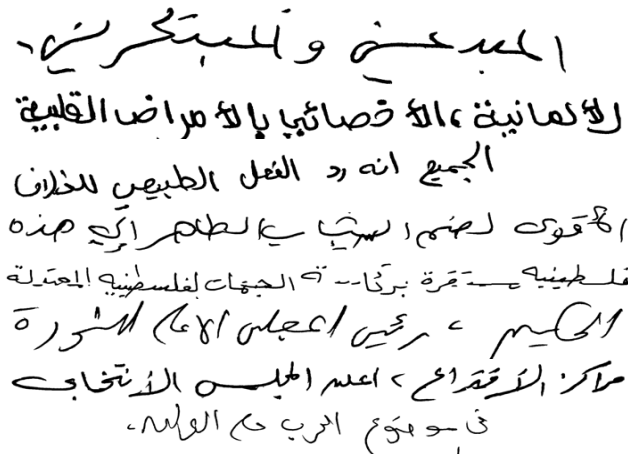 المبدعين والمبتكرين.
للألمانية، الأخصائيا بالأمراض القلبية
الجميع انه رد الفعل الطبيعي للخلاف
الأقوى لضم الشباب الطاهر إلى هذه
فلسطينية مستقرة بركات الجبهات لفلسطينية المعتدلة
الحكيم، رئيس المجلس الأعلى للثورة
مراكز الاقتراع، اعلن المجلس الأنتخابي
في موضوع الحرب